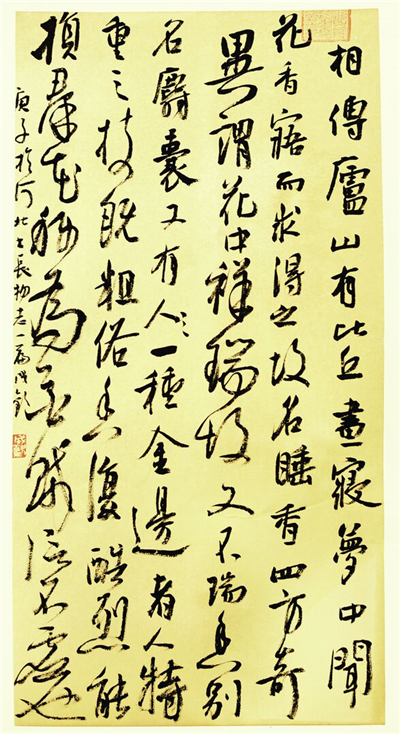 相傳廬山有比丘晝寢夢中聞
花香寤而求得之故名睡香四方奇
異謂花中祥瑞故又名瑞香別
名麝囊又有人一種金邊者人特
重之枝既粗俗香復酷烈能
損羣花稱為花賊信不虛也
庚子於河北長物志一篇